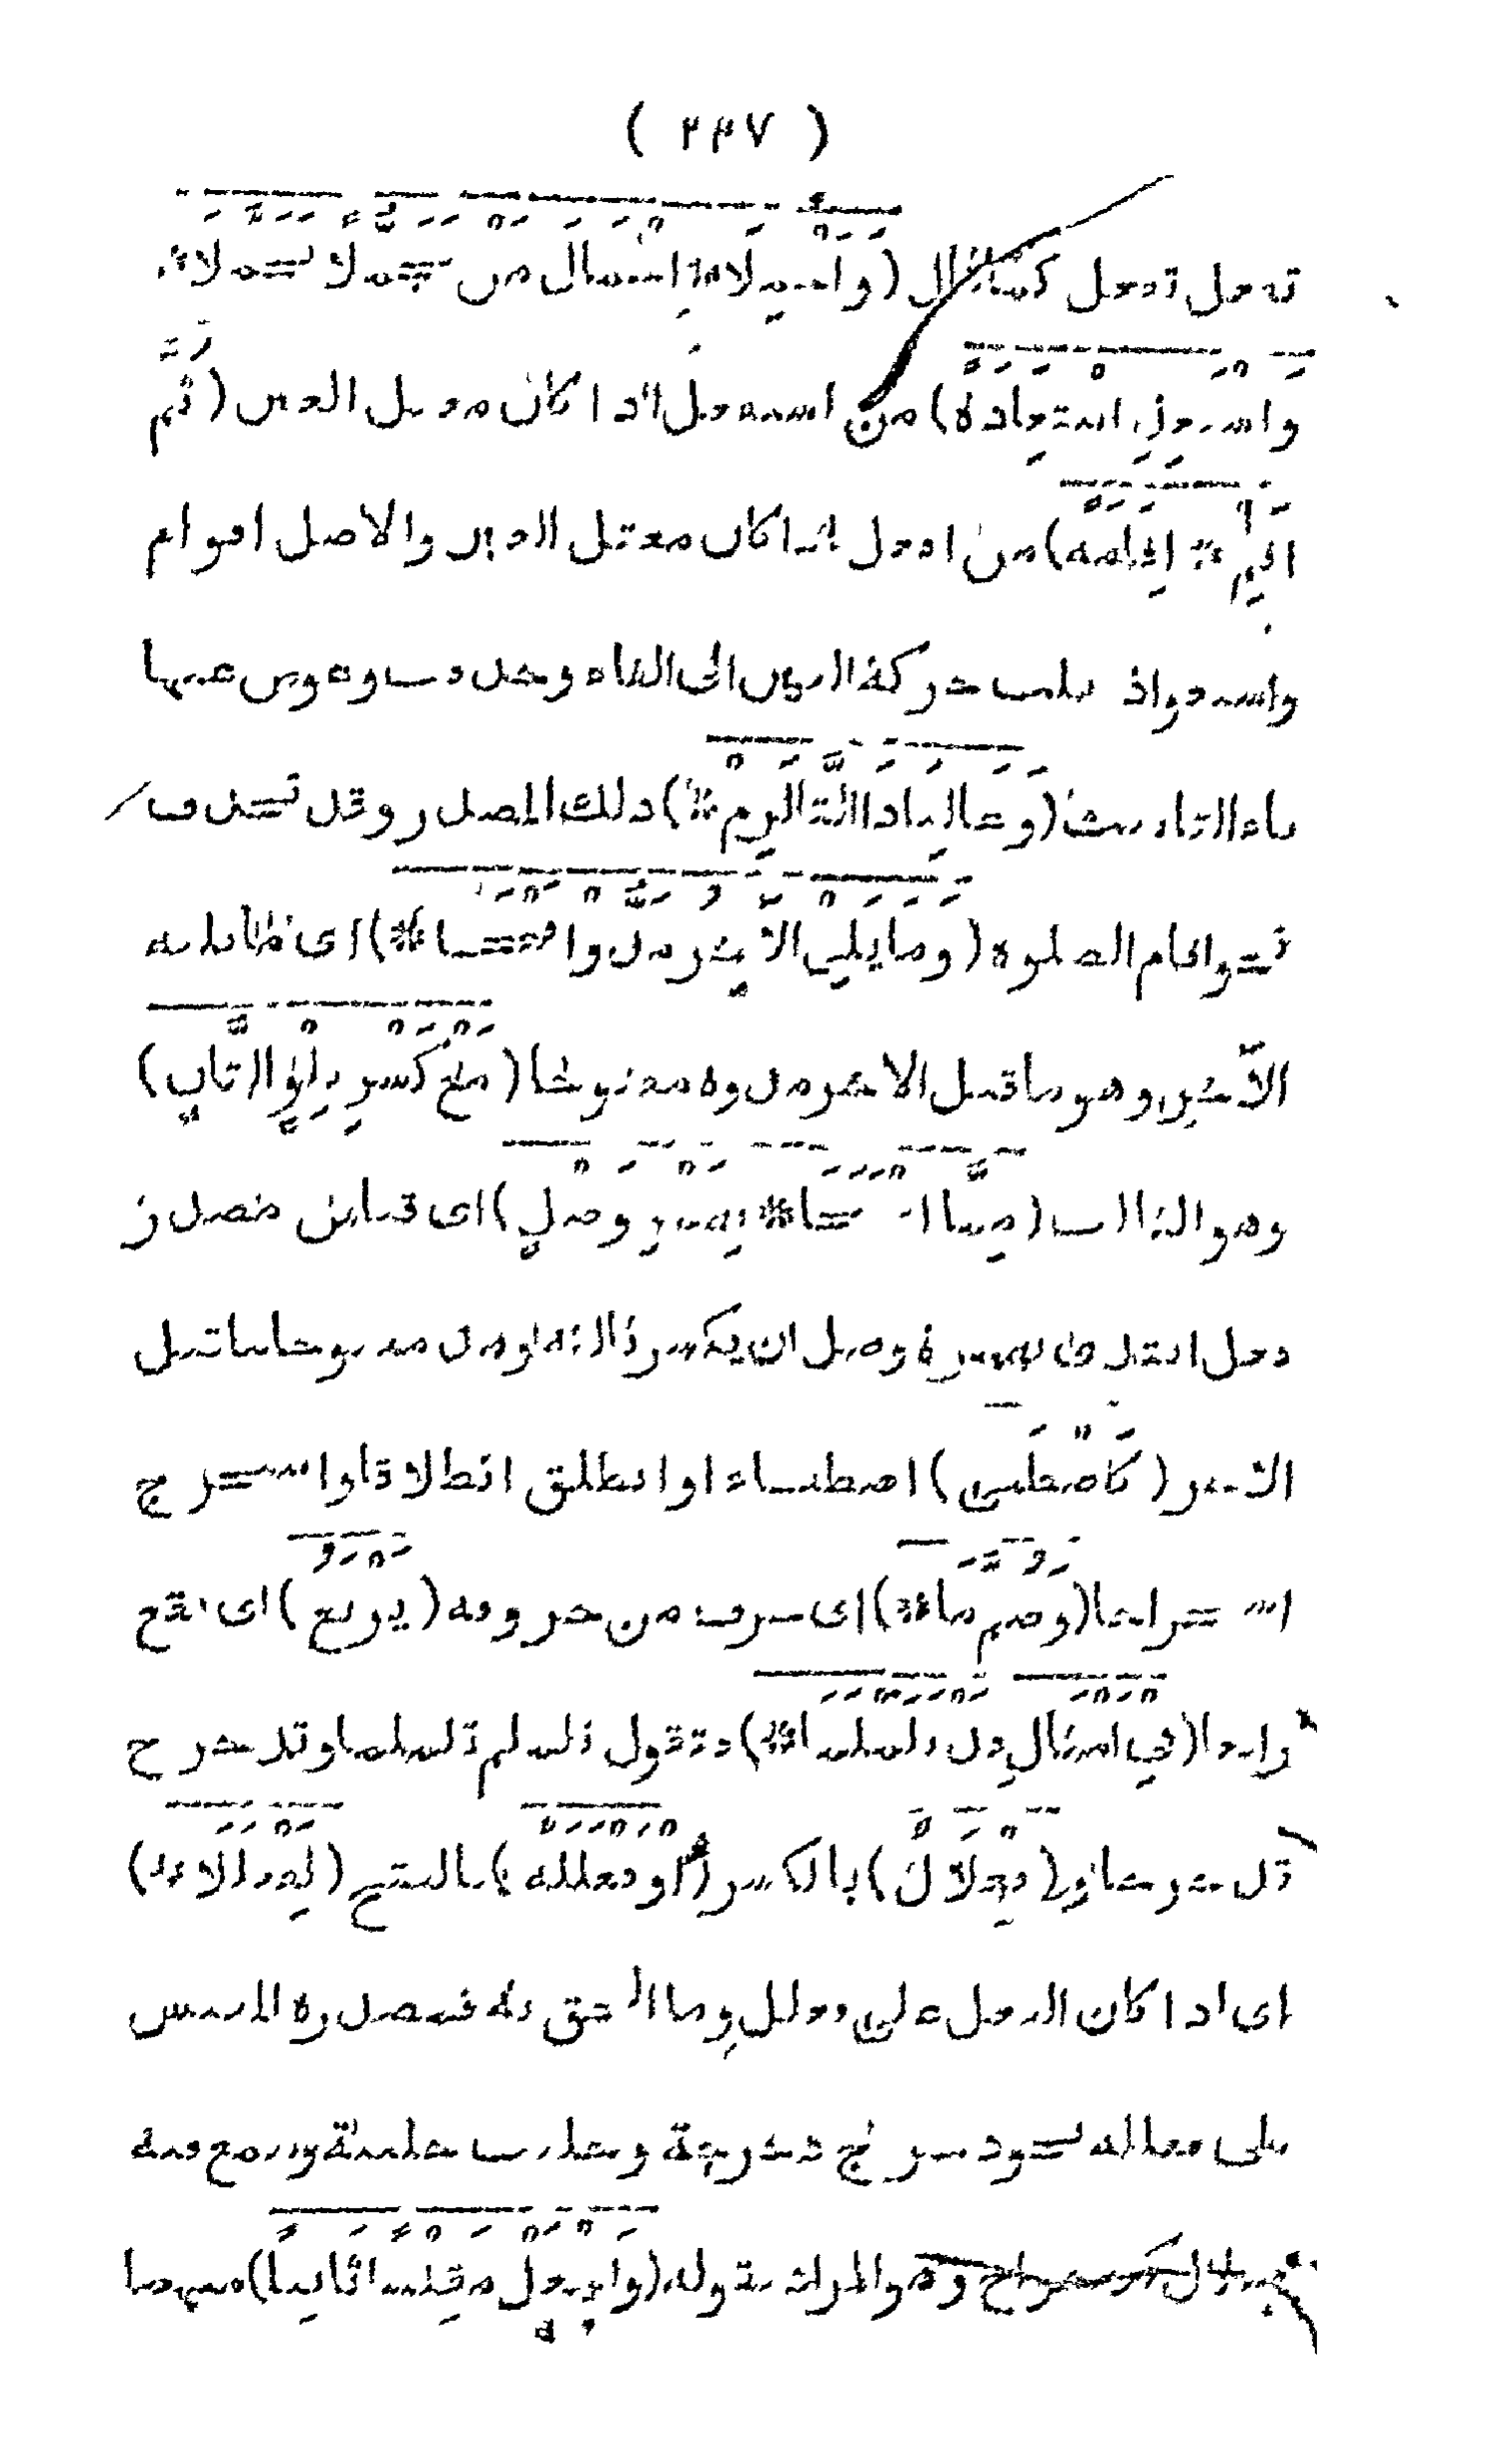 ( ٢٣٧ )
تفعل تفعل كتجمل (واجملا * اجمال من تجملا تجملا *
واستعذ استعاذة) من استفعل اذا كان معتل العين (ثم
اقم * اقامة) من افعل اذا كان معتل العين والاصل اقوام
واستعواذ نقلت حركة العين الى الفاء وحذفت وعوض عنها
تاء التأنيث (وغالبا ذا التا لزم *) ذلك المصدر وقد تحذف
نحو اقام الصلوة (وما يلي الآخر مد وافتحا *) اى ما يليه
الآخر وهو ما قبل الاخر مده مفتوحا (مع كسر تلو الثاني)
وهو الثالث (مما افتتحا * بهمز وصل) اى قياس مصدر
فعل ابتدئ بهمزة وصل ان يكسر ثالثه ويمد مفتوحا ما قبل
الاخر (كاصطفى) اصطفاء او انطلق انطلاقا واستخرج
استخراجا (وضم ما *) اى حرف من حروفه (يربع) اى يقع
رابعا (في امثال قد تلملما *) فتقول تلملم تلملما وتدحرج
تدحرجا و(فعلال) بالكسر (او فعللة) بالفتح (لفعللا *)
اى اذا كان الفعل على فعلل وما الحق به فمصدره المقيس
على فعللة نحو دحرج دحرجة وجلبب جلببة ويسمع فيه
فعلال كدحراج وهو المراد بقوله (واجعل مقيسا ثانيا) منهما